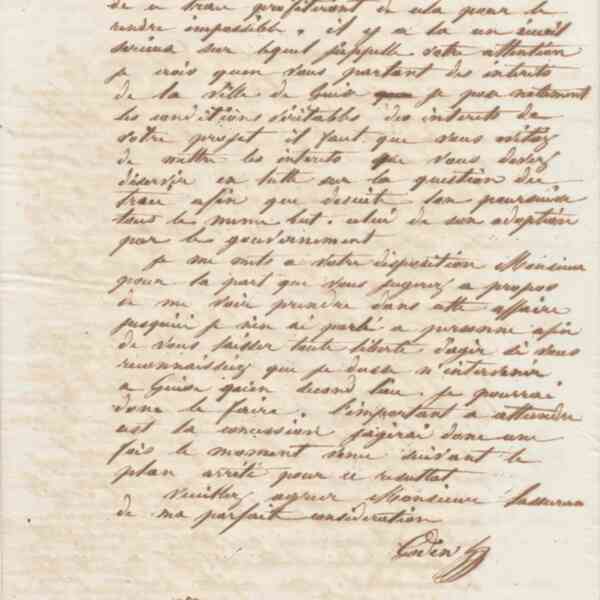 de ce tracé profiteront de cela pour le
rendre impossible, il y a la un écueil
serieux sur lequel j'appelle votre attention
je crois qu'en vous parlant des interets
de la ville de Guise je pose nettement
les conditions véritables des interets de
votre projet il faut que vous évitiez
de mettre les interets que vous devez
déservir en lutte sur la question du
tracé afin que desuite l'on poursuive
tous le meme but. celui de son adoption
par le gouvernement
je me mets a votre disposition Monsieur
pour la part que vous jugerez a propos
de me voir prendre dans cette affaire
jusqu'ici je n'en ai parlé a personne afin
de vous laisser toute liberté d'agir si vous
reconnaissiez que je dusse n'intervenir
a Guise qu'en second lieu. je pourrai
donc le faire. l'important a attendre
est la concession j'agirai donc une
fois le moment venu suivant le
plan arrêté pour ce resultat
Veuillez agréer Monsieur l'assurance
de ma parfaite consideration
Godin